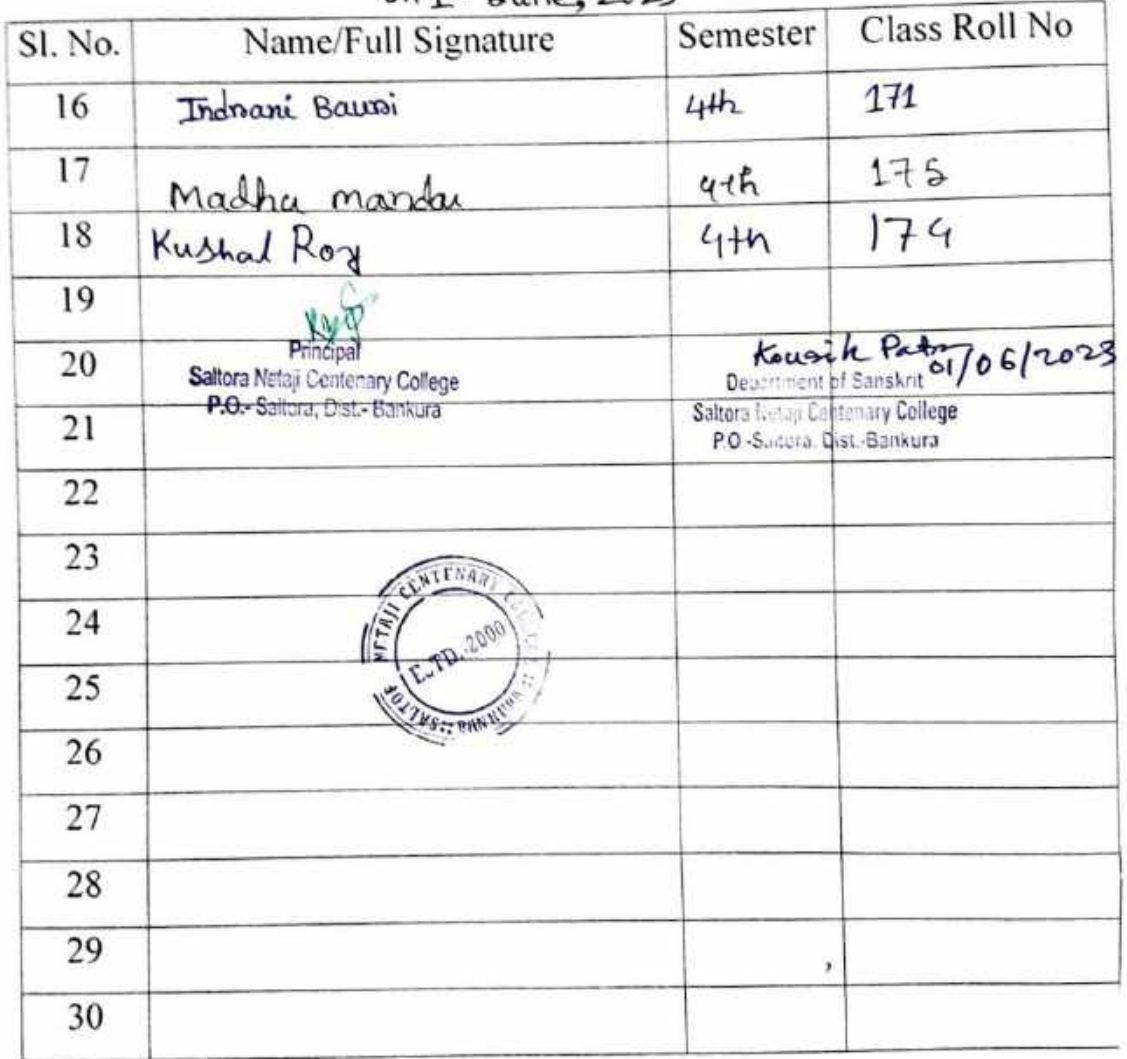 on 1 June, 2023
Sl. No. Name/Full Signature Semester Class Roll No
16 Indrani Bauri 4th 171
17 Madhu mandal 4th 175
18 Kushal Roy 4th 174
19
20
Principal
Saltora Netaji Centenary College
P.O.- Saltora, Dist.- Bankura
Kousik Patra 01/06/2023
Department of Sanskrit
Saltora Netaji Centenary College
P.O -Saltora, Dist.-Bankura
21
22
23
24
NETAJI CENTENARY COLLEGE
ESTD.-2000
25
26
27
28
29
30